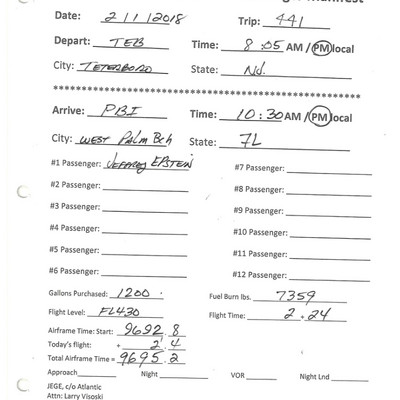 Manifest
Date: 2/1/2018 Trip: 441
Depart: TEB Time: 8:05 AM / PM local
City: TETERBORO State: NJ.
****************************************************
Arrive: PBI Time: 10:30 AM / PM local
City: WEST PALM Bch State: FL
#1 Passenger: JEFFREY EPSTEIN #7 Passenger:
#2 Passenger: #8 Passenger:
#3 Passenger: #9 Passenger:
#4 Passenger: #10 Passenger:
#5 Passenger: #11 Passenger:
#6 Passenger: #12 Passenger:
Gallons Purchased: 1200. Fuel Burn lbs. 7359
Flight Level: FL430 Flight Time: 2.24
Airframe Time: Start: 9692.8
Today's flight: + 2.4
Total Airframe Time = 9695.2
Approach Night VOR Night Lnd
JEGE, c/o Atlantic
Attn: Larry Visoski